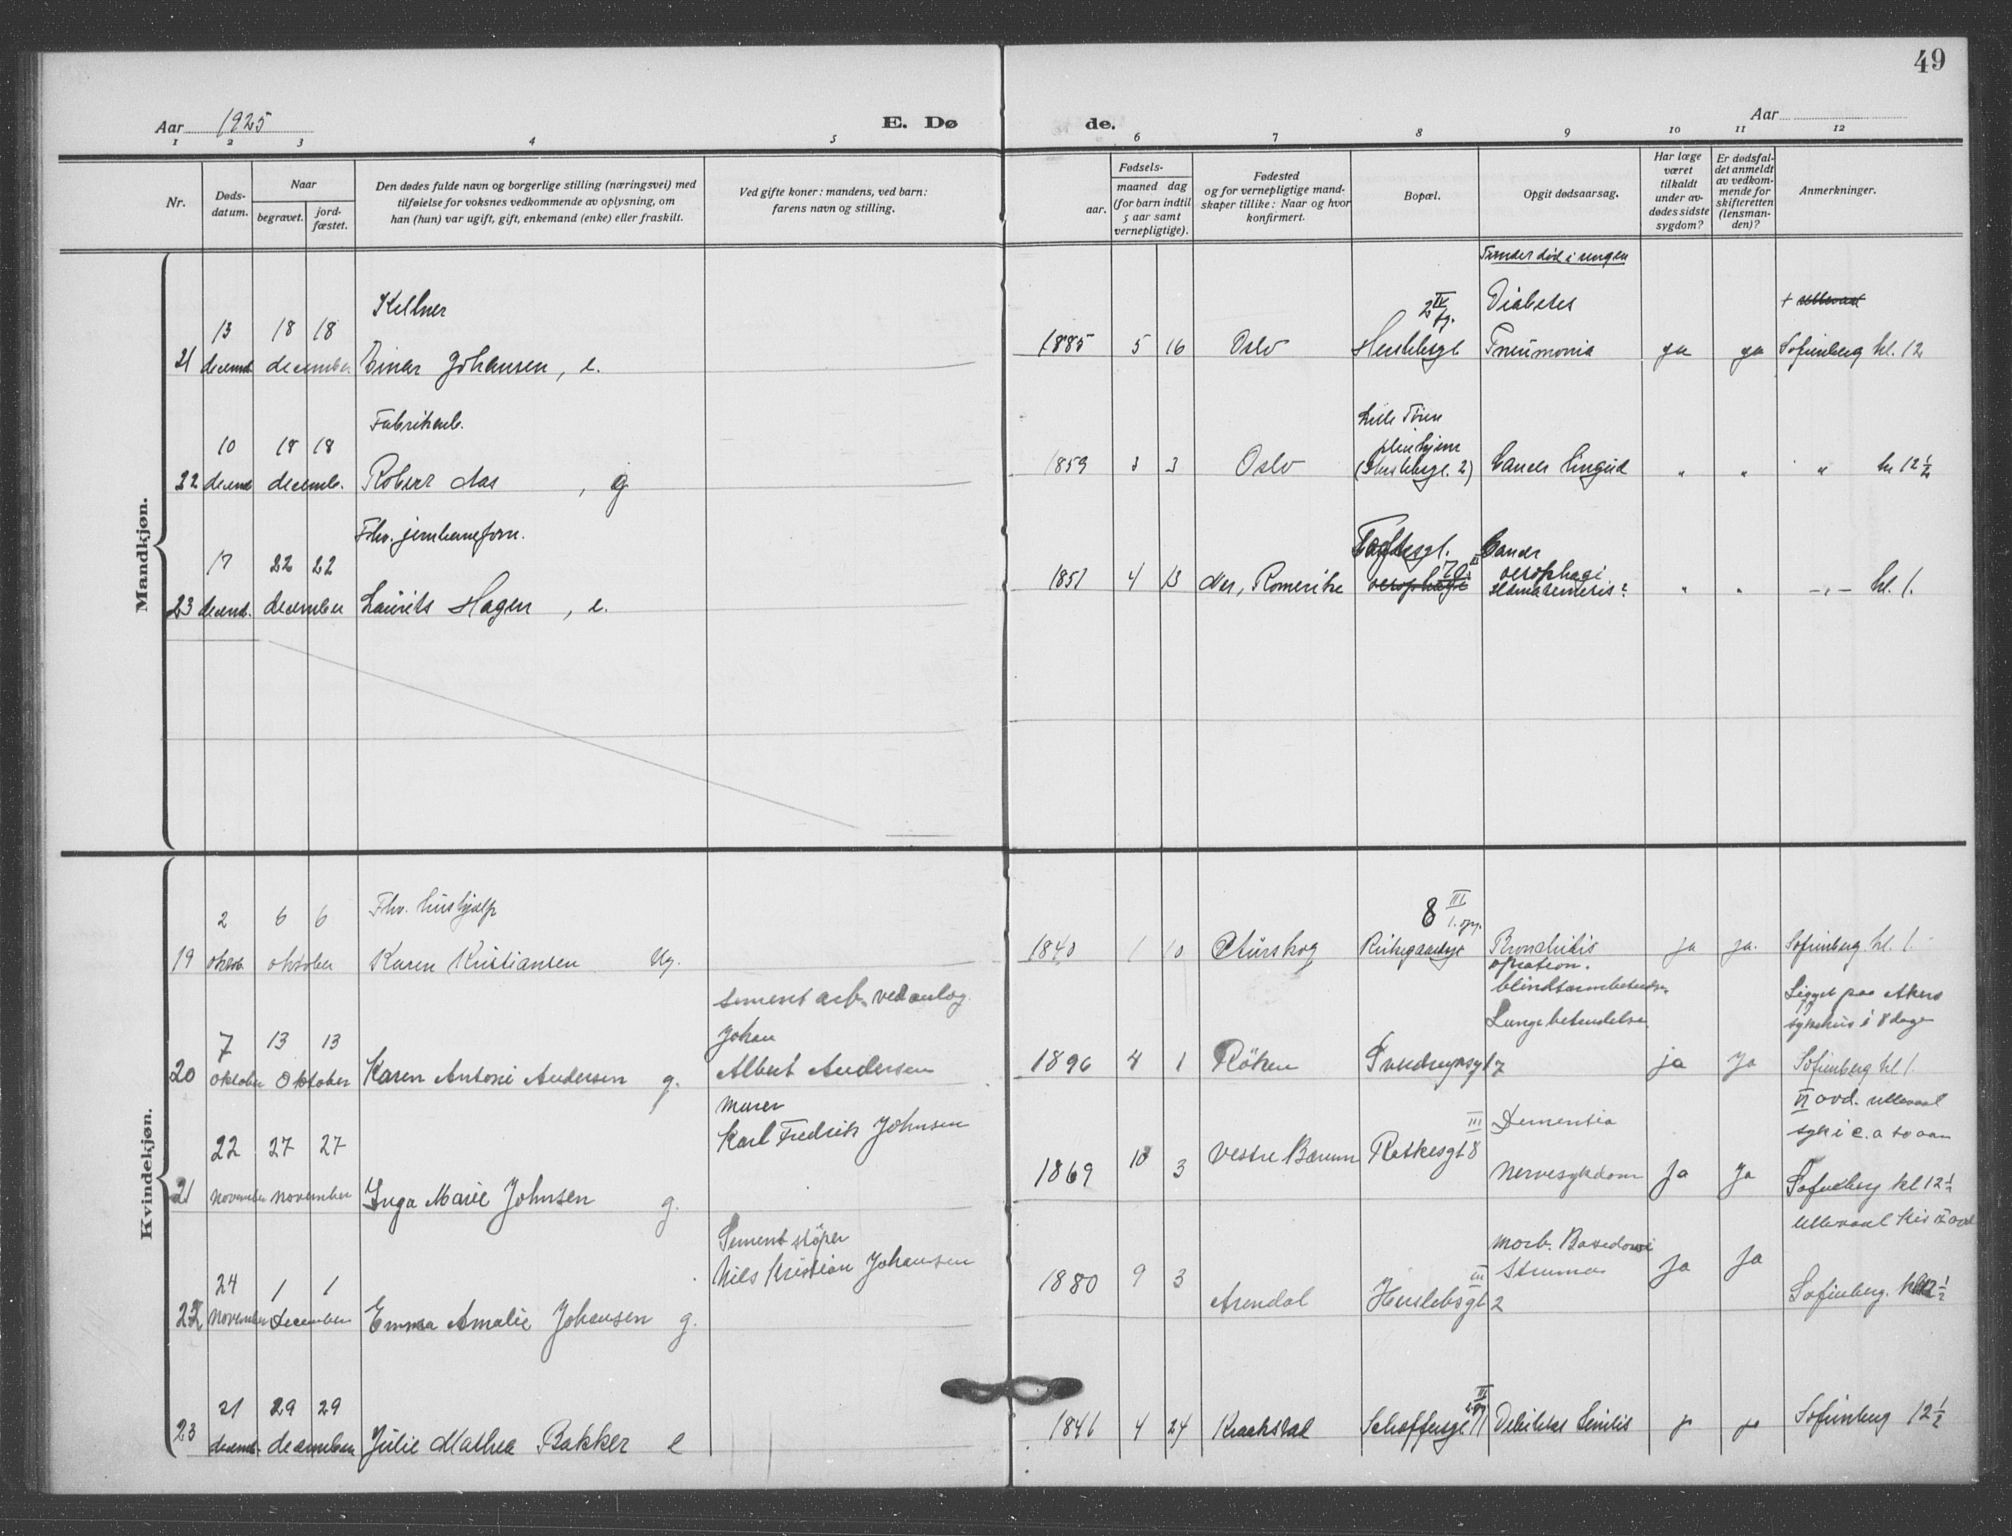 49
Aar 1925
E. Dø
de.
Aar
1 2 3 4 5 6 7 8 9 10 11 12
Nr.
Døds-
datum.
Naar
begravet.
jord-
fæstet.
Den dødes fulde navn og borgerlige stilling (næringsvei) med
tilføielse for voksnes vedkommende av oplysning, om
han (hun) var ugift, gift, enkemand (enke) eller fraskilt.
Ved gifte koner: mandens, ved barn:
farens navn og stilling.
Fødsels-
aar.
maaned dag
(for barn indtil
5 aar samt
vernepligtige).
Fødested
og for vernepligtige mand-
skaper tillike: Naar og hvor
konfirmert.
Bopæl.
Opgit dødsaarsag.
Har læge
været
tilkaldt
under av-
dødes sidste
sygdom?
Er dødsfal-
det anmeldt
av vedkom-
mende for
skifteretten
(lensman-
den)?
Anmerkninger.
Mandkjøn.
Kellner
13 18 18
21 decemb. december Einar Johansen, e.
Funder død i sengen
IV
Diabetes
+ ullevaal
1885 5 16 Oslo Herslebsgt Pneumonia ja ja Sofienberg kl. 12
Fabrikarb.
10 18 18
22 decemb. decemb. Robert Aas , g
Lille Tøien
pleiehjem
1859 3 3 Oslo (Herslebsgt. 2) Cancer " " " kl 12½
Fhv. jernbaneform.
17 22 22
23 decemb. december Laurits Hagen , e.
Cancer
oesophagi
1851 4 13 Nes, Romerike 70 oesophagi " " -"- kl. 1.
Kvindekjøn.
Fhv. hushjælp
2 6 6
19 oktob. oktober Karen Kristiansen Ug.
8 III
1. opg.
1840 1 10 Aurskog Kirkegaardsgt Bronchitis ja ja. Sofienberg kl. 1.
Sement arb. ved anlæg.
Johan
7 13 13
20 oktober oktober Karen Antoni Andersen g. Albert Andersen
operation.
blindtarmbetendelse
Lungebetendelse
Ligget paa Akers
sykehus i 8 dage
1896 4 1 Röken Sverdrupsgt 7 ja ja Sofienberg kl 1.
murer
22 27 27 Karl Fredrik Johnsen
21 november november Inga Marie Johnsen g.
VI avd. ullevaal
syk i c. a to aar
III Dementia
1869 10 3 Vestre Bærum Ratkesgt 8 nervesykdom ja ja Sofienberg kl 12½
Sement støper
24 1 1 Nils Kristian Johansen
22 november December Emma Amalie Johansen g.
ullevaal
morb. Basedowi
III Struma
1880 9 3 Arendal Herslebsgt 2 ja ja Sofienberg. kl 12½
21 29 29
23 decemb. decemben Julie Mathea Bakker e
III
1841 4 24 Kraakstad Schoffersgt 11 Debilitas Senilis ja ja Sofienberg 12½